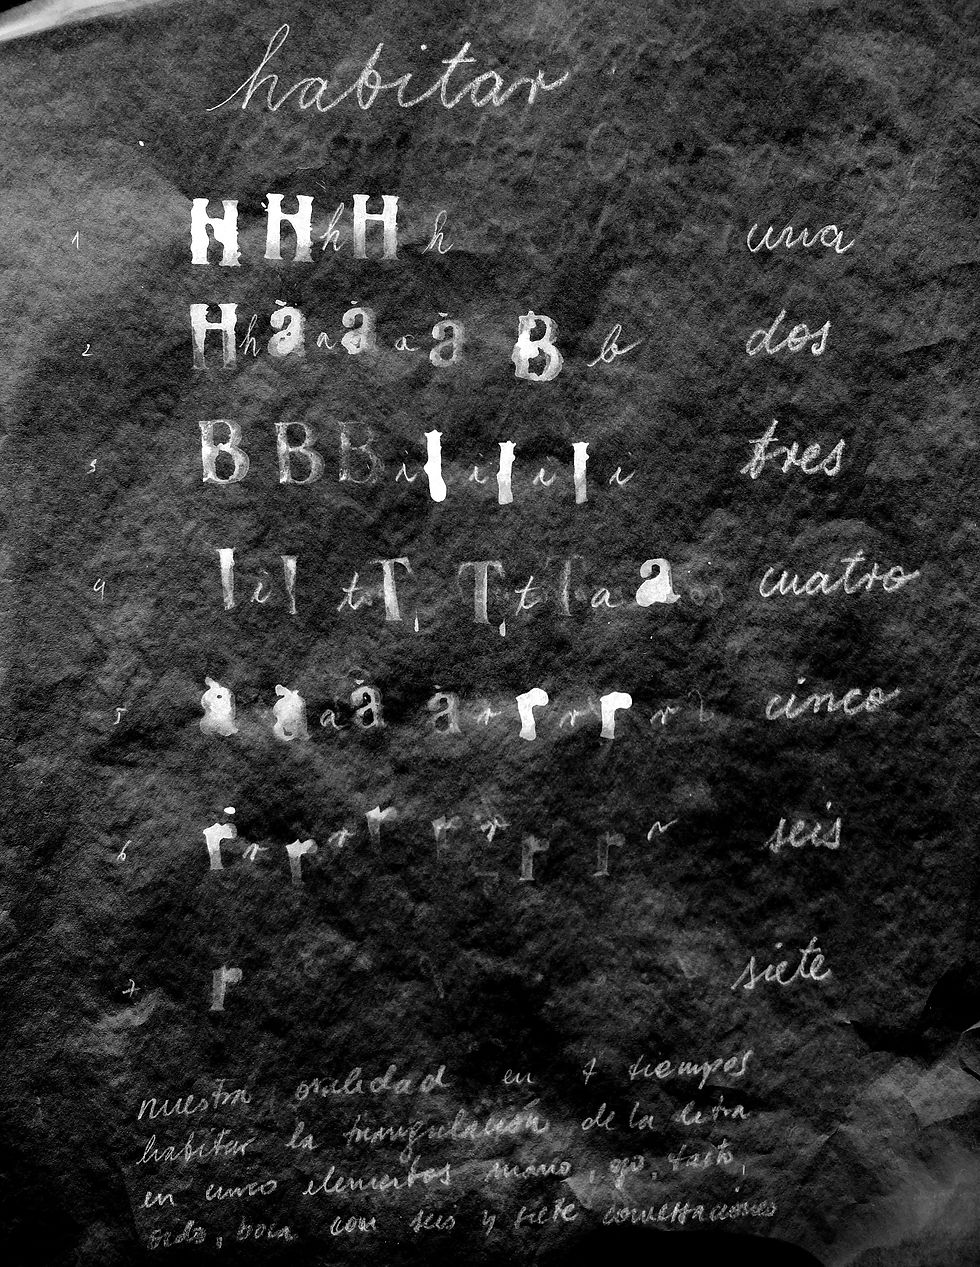 habitar
1 H H h H h una
2 H h à a à a à B b dos
3 B B B i I i I i I i tres
4 I i I t T T t T a a cuatro
5 à à a à à r r r r r cinco
6 r r r r r r r r r r seis
7 r siete
nuestra oralidad en 7 tiempos
habitar la triangulación de la letra
en cinco elementos mano, ojo, tacto,
oido, boca con seis y siete conversaciones